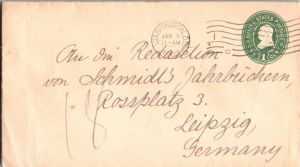 WASHINGTON, D.C.
JAN 5
11-AM
UNITED STATES POSTAGE
1
An die Redaktion
von Schmidt's Jahrbüchern,
Rossplatz 3.
Leipzig,
Germany